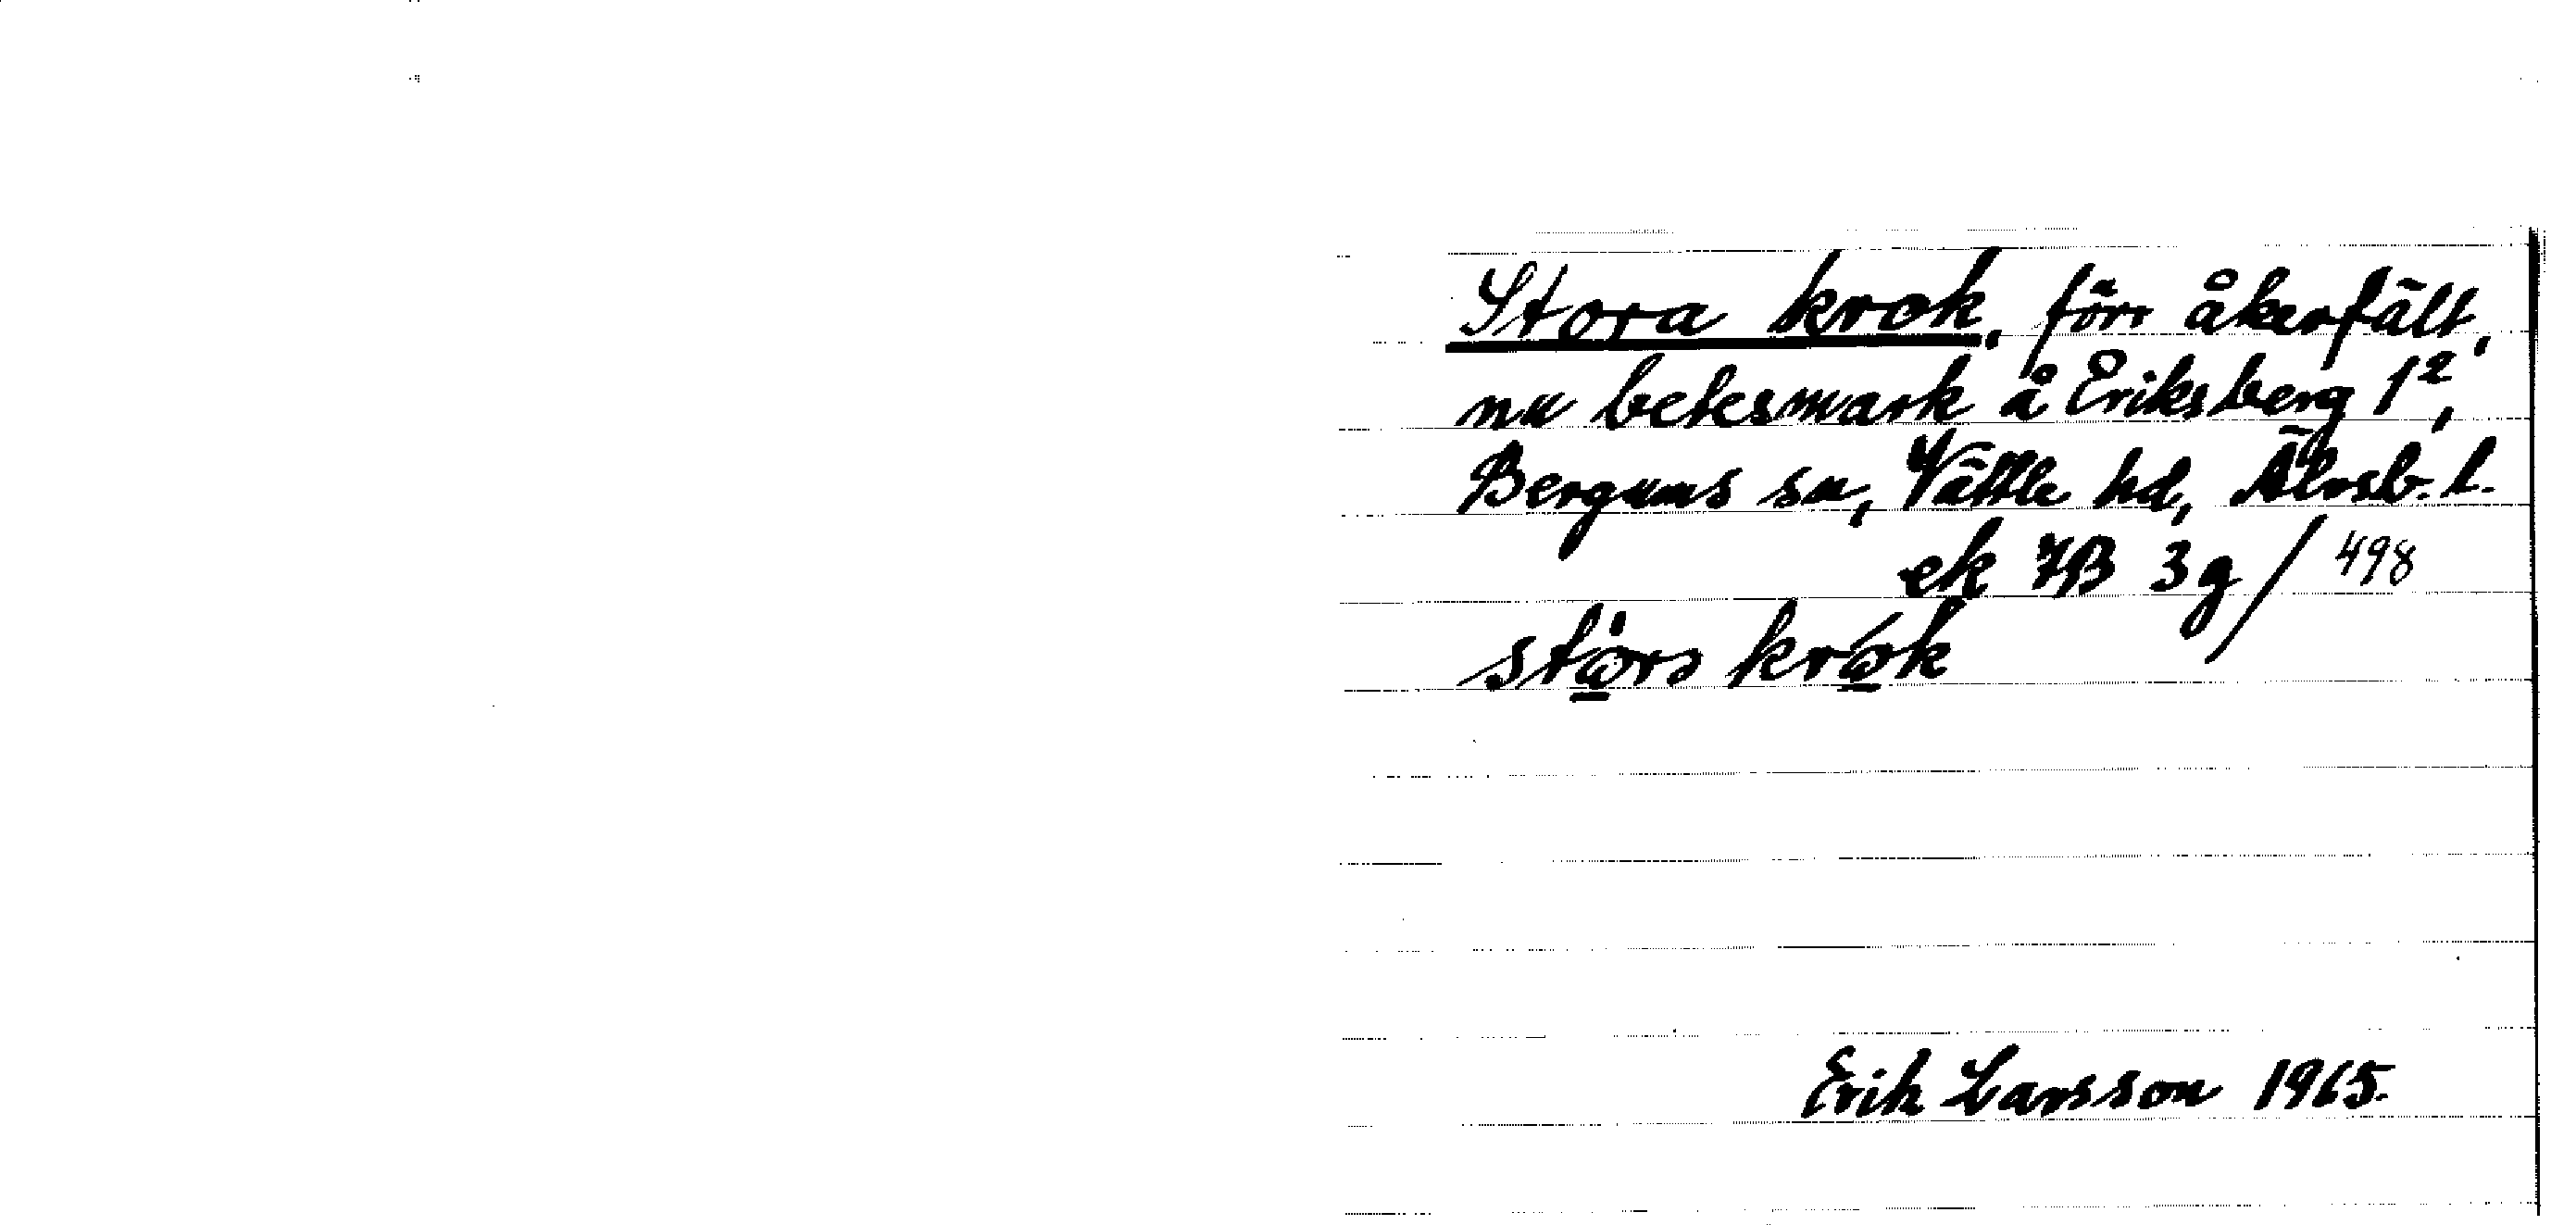 Stora krok, förr åkerfält,
nu betesmark å Eriksberg 1²,
Bergums sn, Vättle hd, Älvsb. l.
ek 7B 3g / 498
Erik Larsson 1965.